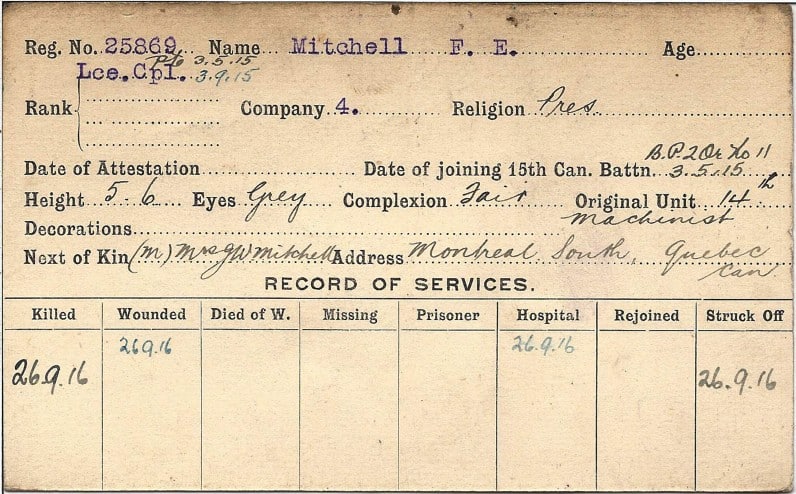 Reg. No. 25869 Name Mitchell F. E. Age
Pte 3.5.15
Lce.Cpl. 3.9.15
Rank Company 4. Religion Pres.
B.P.2 Or No 11
Date of Attestation Date of joining 15th Can. Battn. 3.5.15
Height 5.6 Eyes Grey Complexion Fair Original Unit 14th
Decorations Machinist
Next of Kin (M) Mrs J W Mitchell Address Montreal South, Quebec
Can
RECORD OF SERVICES.
Killed Wounded Died of W. Missing Prisoner Hospital Rejoined Struck Off
26.9.16 26.9.16
26.9.16 26.9.16